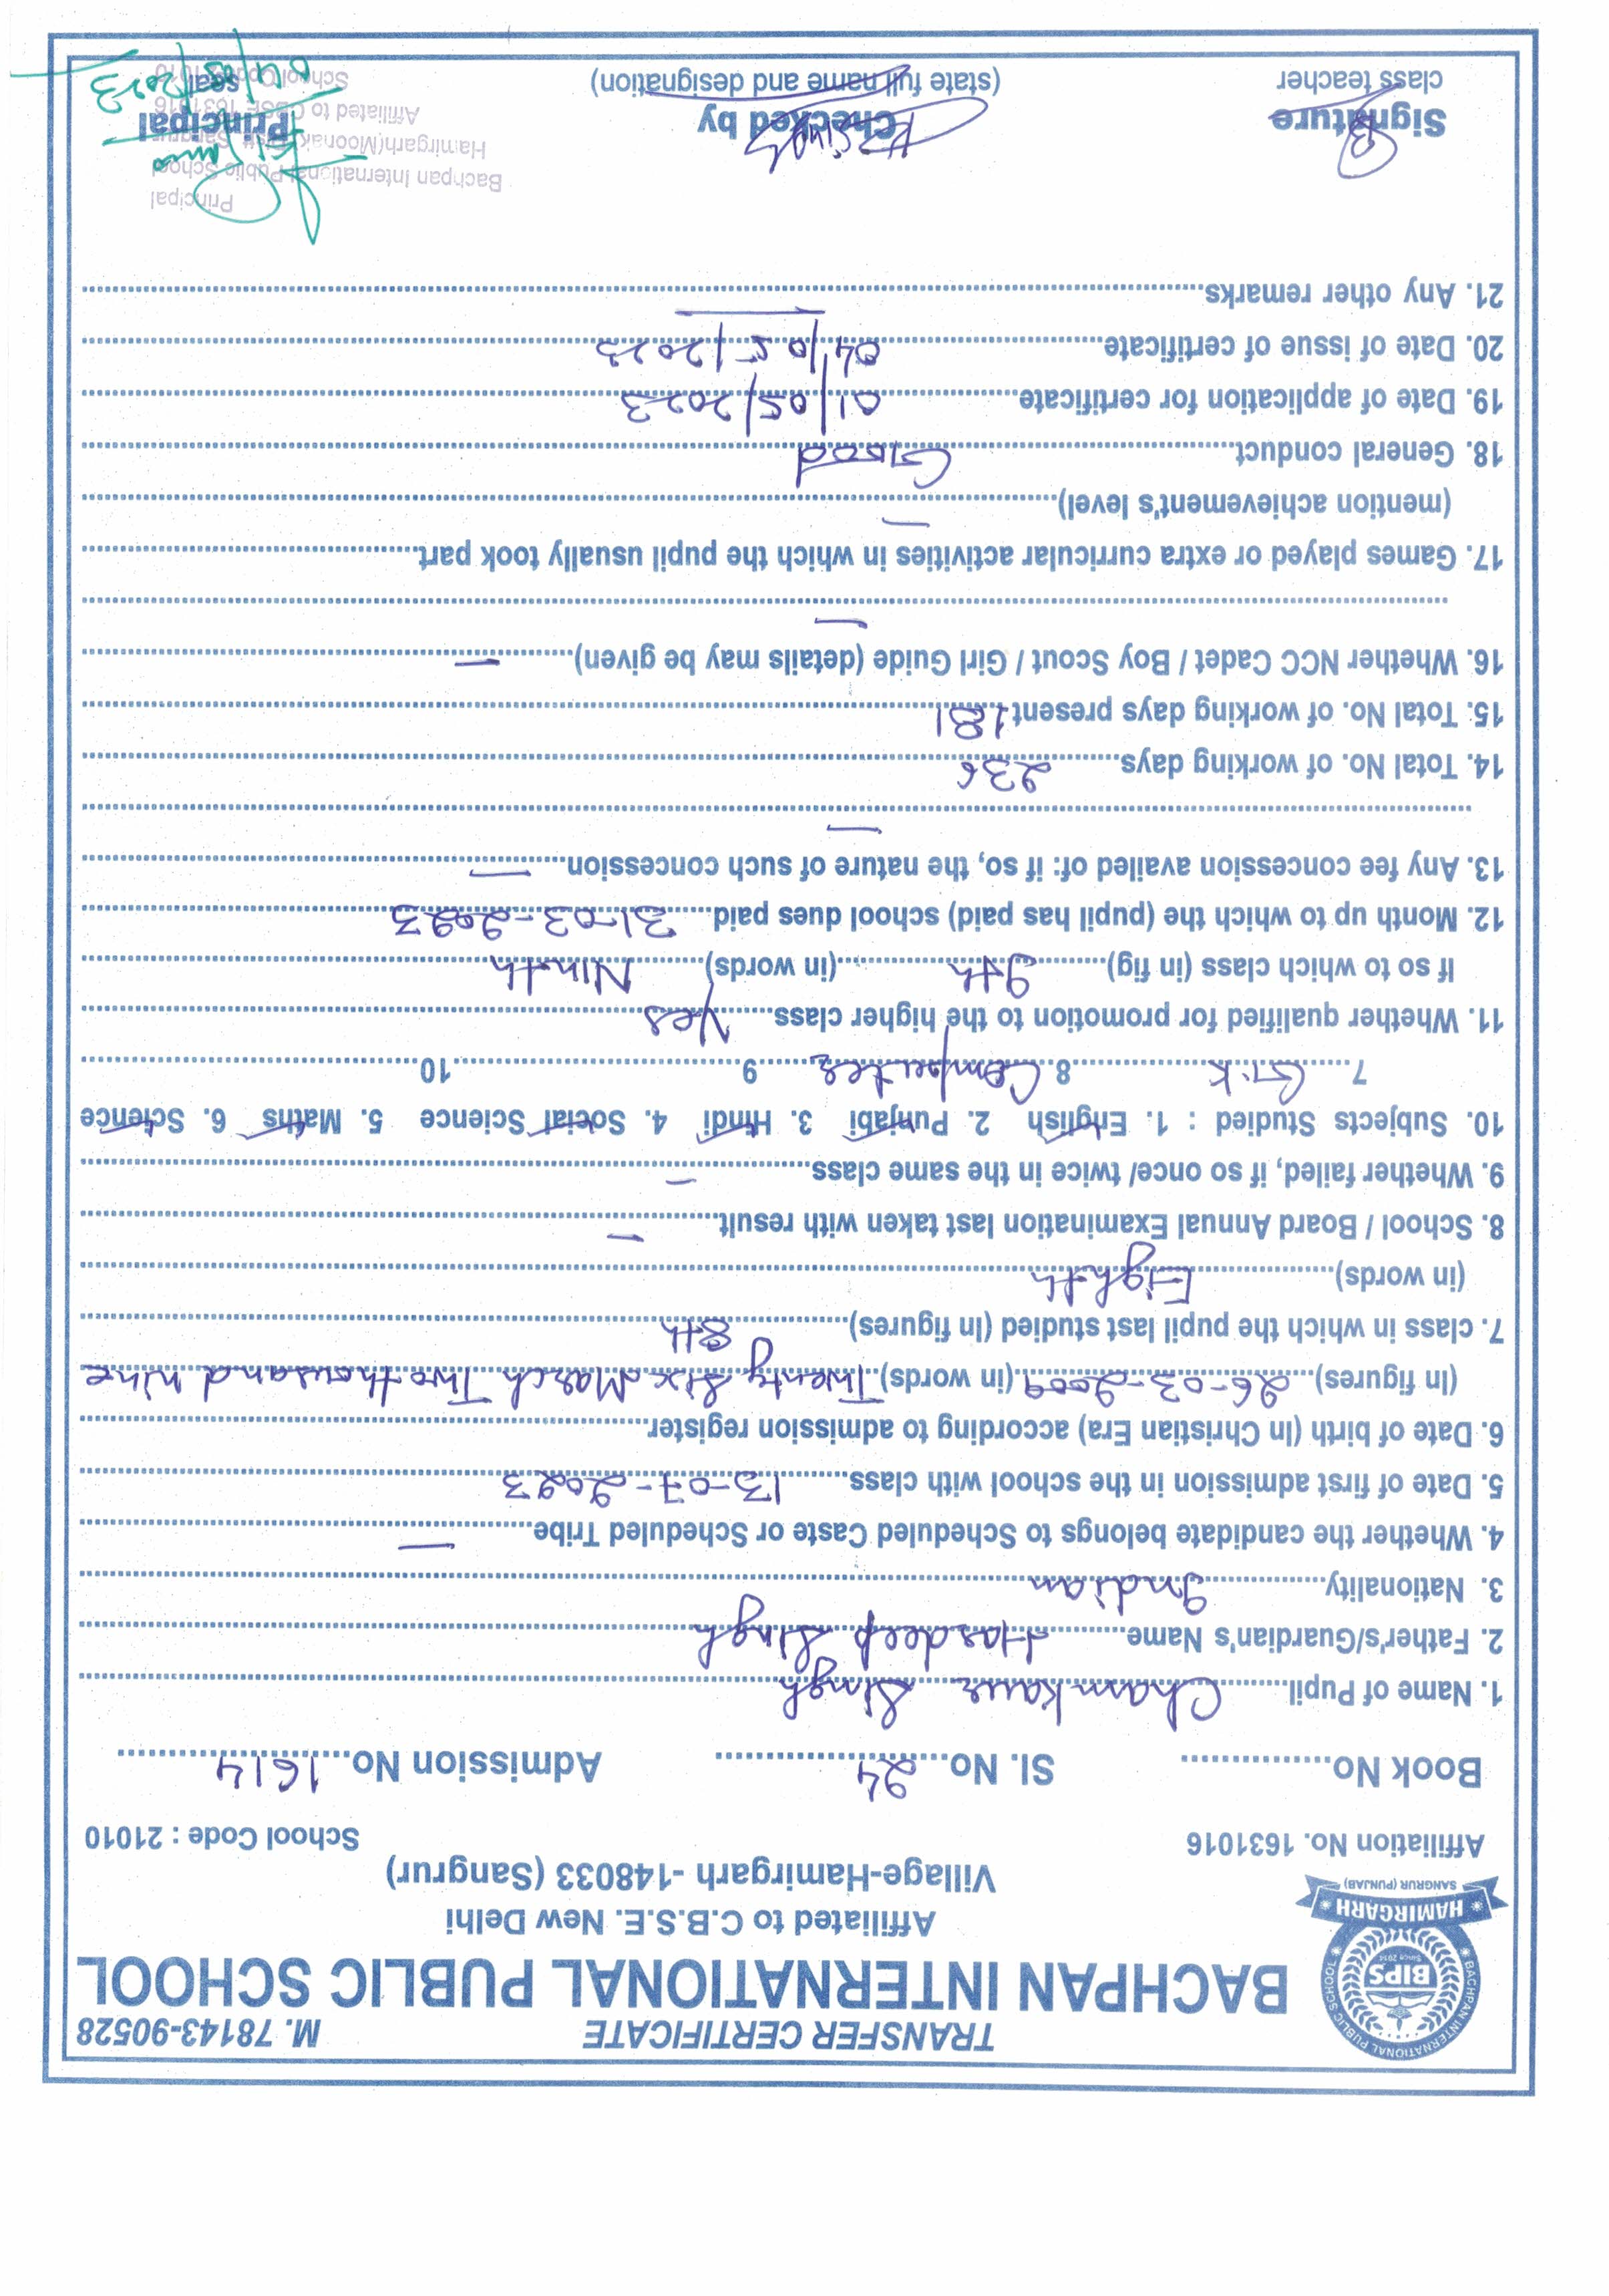 TRANSFER CERTIFICATE M. 78143-90528
BACHPAN INTERNATIONAL PUBLIC SCHOOL
Affiliated to C.B.S.E. New Delhi
Village-Hamirgarh -148033 (Sangrur)
BACHPAN INTERNATIONAL PUBLIC SCHOOL
BIPS
Since 2014
HAMIRGARH
SANGRUR (PUNJAB)
Affiliation No. 1631016 School Code : 21010
Book No. Sl. No. 24 Admission No. 1614
1. Name of Pupil Chamkaur Singh
2. Father's/Guardian's Name Hardeep Singh
3. Nationality Indian
4. Whether the candidate belongs to Scheduled Caste or Scheduled Tribe —
5. Date of first admission in the school with class 13-07-2023
6. Date of birth (In Christian Era) according to admission register
(In figures) 26-03-2009 (in words) Twenty Six March Two thousand nine
7. class in which the pupil last studied (In figures) 8th
(in words) Eighth
8. School / Board Annual Examination last taken with result —
9. Whether failed, if so once/ twice in the same class —
10. Subjects Studied : 1. English 2. Punjabi 3. Hindi 4. Social Science 5. Maths 6. Science
7 G.K 8 Computer 9 10
11. Whether qualified for promotion to the higher class Yes
If so to which class (in fig) 9th (in words) Ninth
12. Month up to which the (pupil has paid) school dues paid 31-03-2023
13. Any fee concession availed of: if so, the nature of such concession —
—
14. Total No. of working days 236
15. Total No. of working days present 181
16. Whether NCC Cadet / Boy Scout / Girl Guide (details may be given) —
—
17. Games played or extra curricular activities in which the pupil usually took part
(mention achievement's level) —
18. General conduct Good
19. Date of application for certificate 01/05/2023
20. Date of issue of certificate 04/05/2023
21. Any other remarks
Principal
Bachpan International Public School
Hamirgarh(Moonak) Distt. Sangrur
Affiliated to CBSE 1631016
School Code
Signature Checked by Principal
class teacher (state full name and designation) seal
04/05/2023